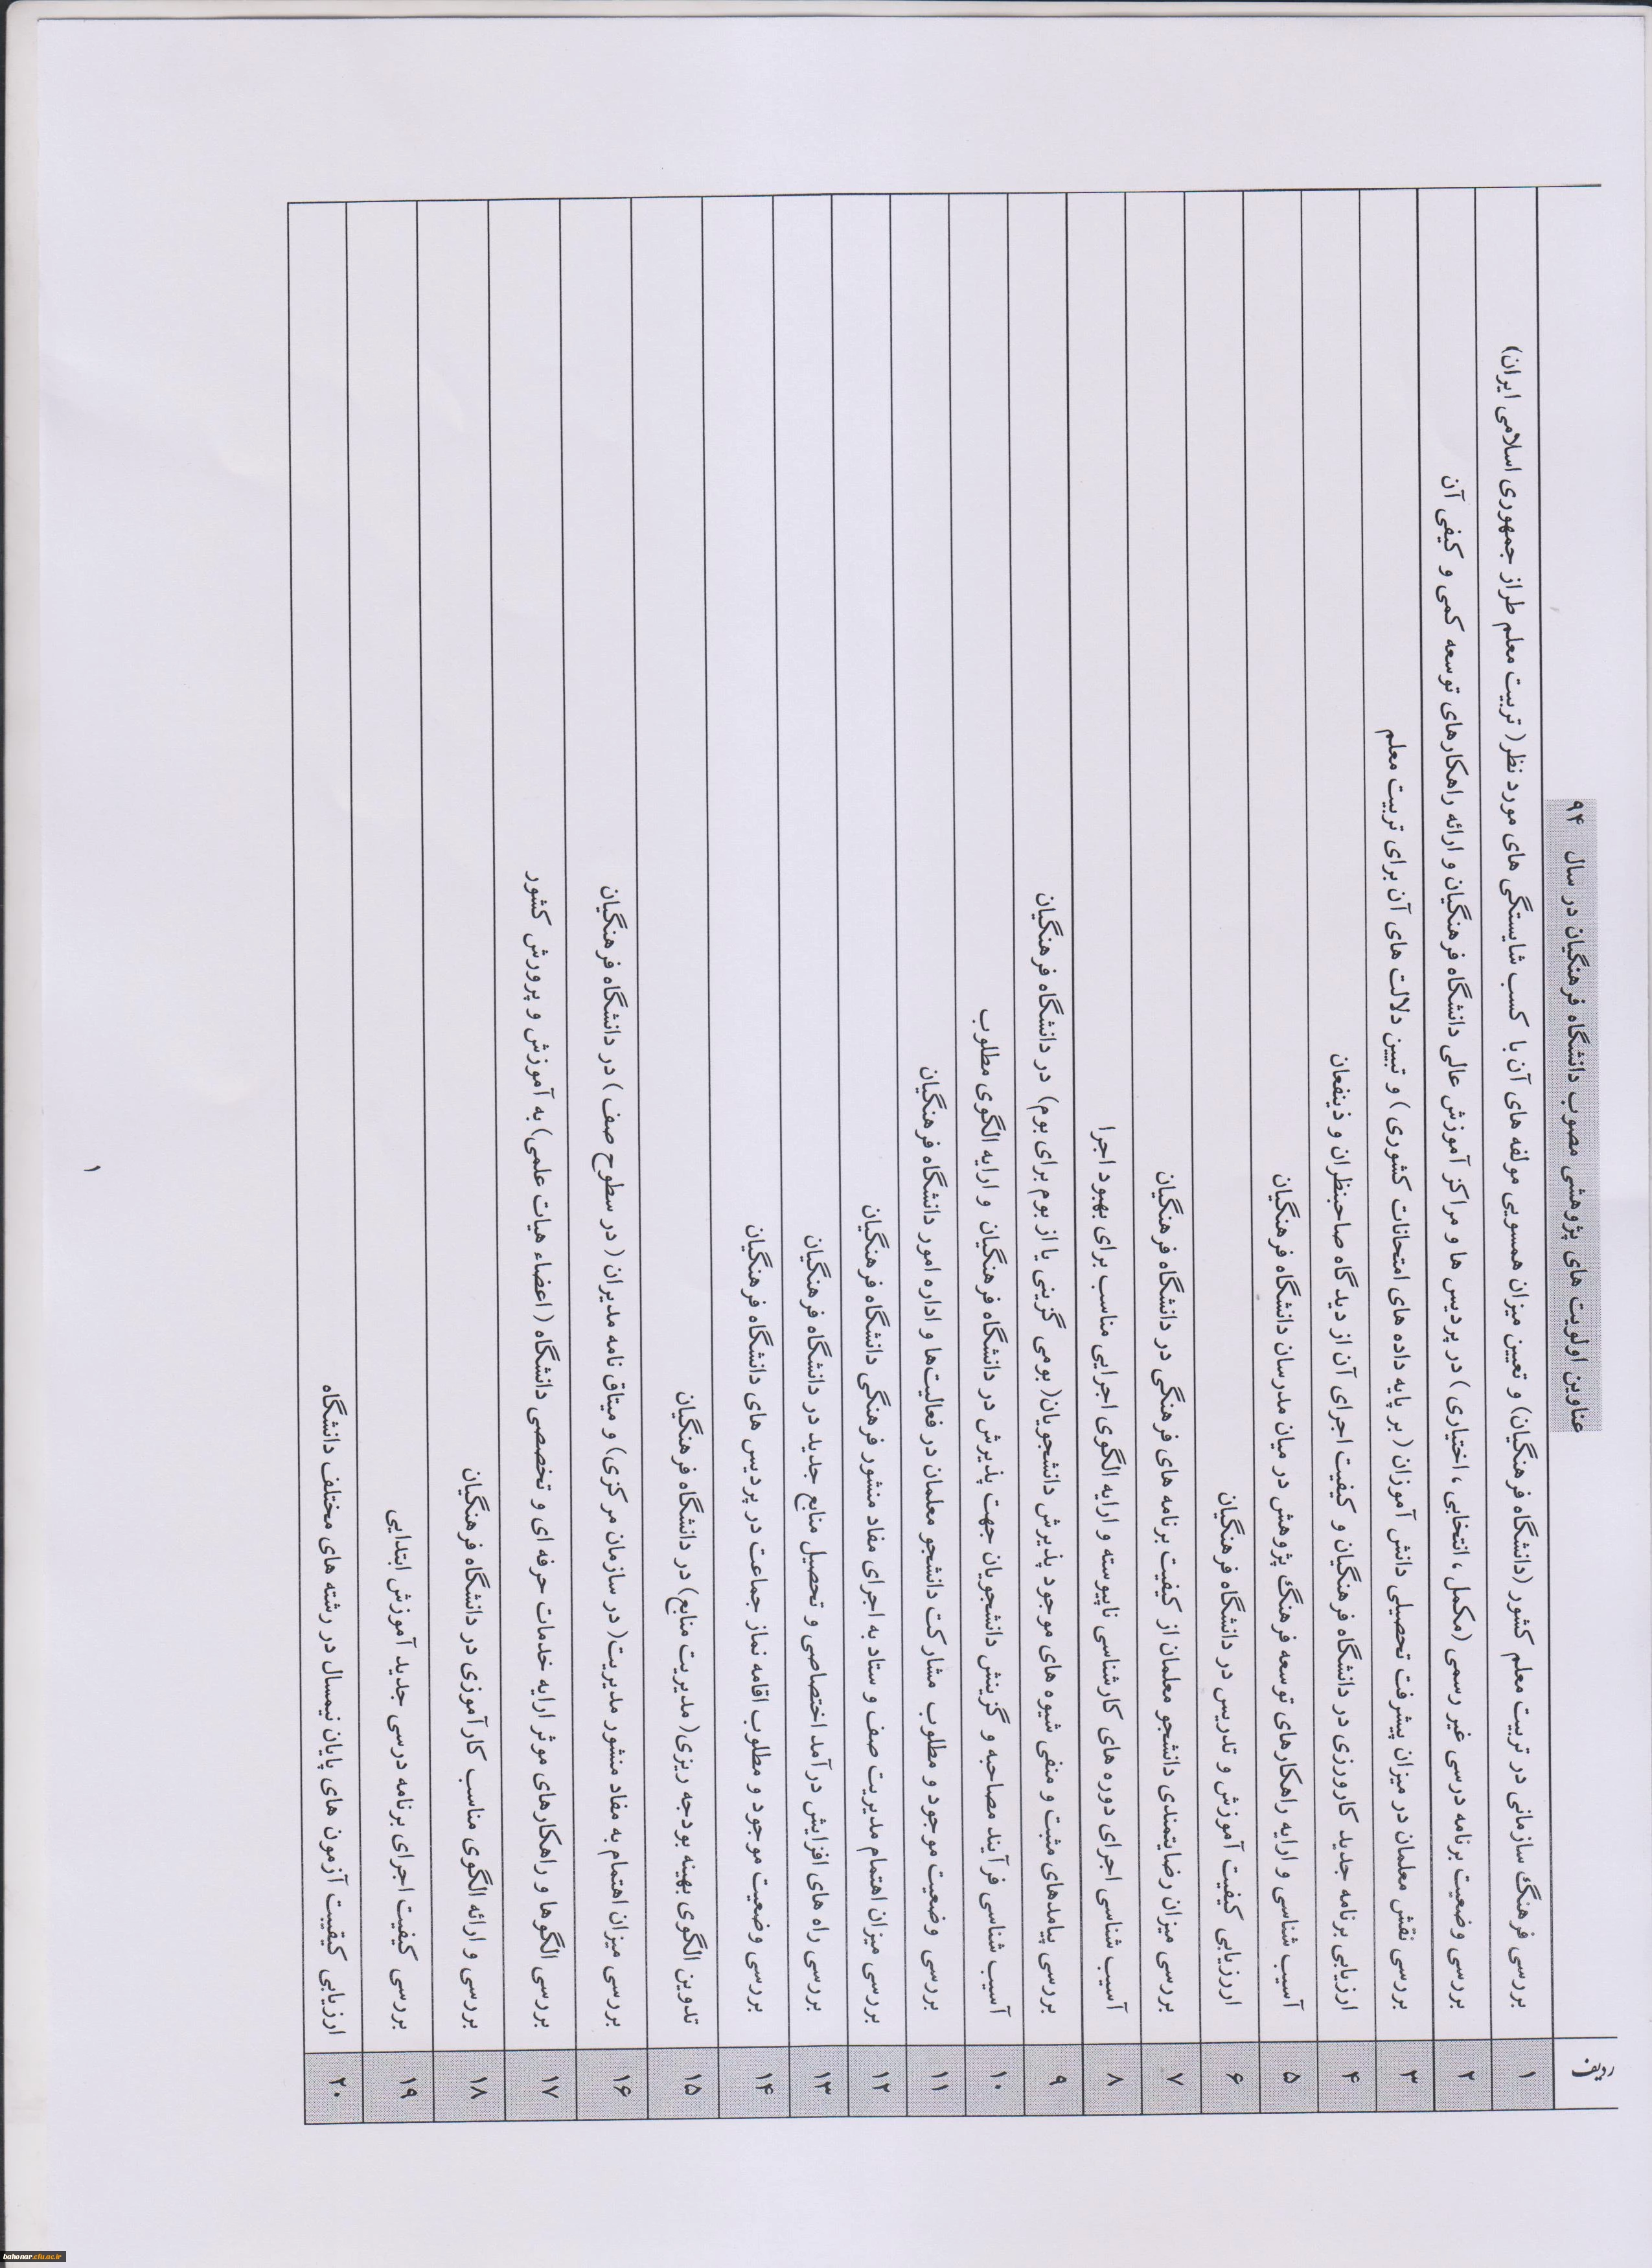 ردیف عناوین اولویت های پژوهشی مصوب دانشگاه فرهنگیان در سال ۹۴
۱ بررسی فرهنگ سازمانی در تربیت معلم کشور (دانشگاه فرهنگیان) و تعیین میزان همسویی مولفه های آن با کسب شایستگی های مورد نظر( تربیت معلم طراز جمهوری اسلامی ایران)
۲ بررسی وضعیت برنامه درسی غیر رسمی (مکمل ، انتخابی ، اختیاری ) در پردیس ها و مراکز آموزش عالی دانشگاه فرهنگیان و ارائه راهکارهای توسعه کمی و کیفی آن
۳ بررسی نقش معلمان در میزان پیشرفت تحصیلی دانش آموزان ( بر پایه داده های امتحانات کشوری ) و تبیین دلالت های آن برای تربیت معلم
۴ ارزیابی برنامه جدید کارورزی در دانشگاه فرهنگیان و کیفیت اجرای آن از دیدگاه صاحبنظران و ذینفعان
۵ آسیب شناسی و ارایه راهکارهای توسعه فرهنگ پژوهش در میان مدرسان دانشگاه فرهنگیان
۶ ارزیابی کیفیت آموزش و تدریس در دانشگاه فرهنگیان
۷ بررسی میزان رضایتمندی دانشجو معلمان از کیفیت برنامه های فرهنگی در دانشگاه فرهنگیان
۸ آسیب شناسی اجرای دوره های کارشناسی ناپیوسته و ارایه الگوی اجرایی مناسب برای بهبود اجرا
۹ بررسی پیامدهای مثبت و منفی شیوه های موجود پذیرش دانشجویان( بومی گزینی یا از بوم برای بوم) در دانشگاه فرهنگیان
۱۰ آسیب شناسی فرآیند مصاحبه و گزینش دانشجویان جهت پذیرش در دانشگاه فرهنگیان و ارایه الگوی مطلوب
۱۱ بررسی وضعیت موجود و مطلوب مشارکت دانشجو معلمان در فعالیت‌ها و اداره امور دانشگاه فرهنگیان
۱۲ بررسی میزان اهتمام مدیریت صف و ستاد به اجرای مفاد منشور فرهنگی دانشگاه فرهنگیان
۱۳ بررسی راه های افزایش درآمد اختصاصی و تحصیل منابع جدید در دانشگاه فرهنگیان
۱۴ بررسی وضعیت موجود و مطلوب اقامه نماز جماعت در پردیس های دانشگاه فرهنگیان
۱۵ تدوین الگوی بهینه بودجه ریزی( مدیریت منابع) در دانشگاه فرهنگیان
۱۶ بررسی میزان اهتمام به مفاد منشور مدیریت( در سازمان مرکزی) و میثاق نامه مدیران ( در سطوح صف ) در دانشگاه فرهنگیان
۱۷ بررسی الگوها و راهکارهای موثر ارایه خدمات حرفه ای و تخصصی دانشگاه ( اعضاء هیات علمی) به آموزش و پرورش کشور
۱۸ بررسی و ارائه الگوی مناسب کارآموزی در دانشگاه فرهنگیان
۱۹ بررسی کیفیت اجرای برنامه درسی جدید آموزش ابتدایی
۲۰ ارزیابی کیفیت آزمون های پایان نیمسال در رشته های مختلف دانشگاه
۱
bahonar.cfu.ac.ir